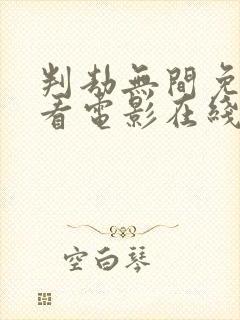 判劫無間免
看電影在綫
空白琴